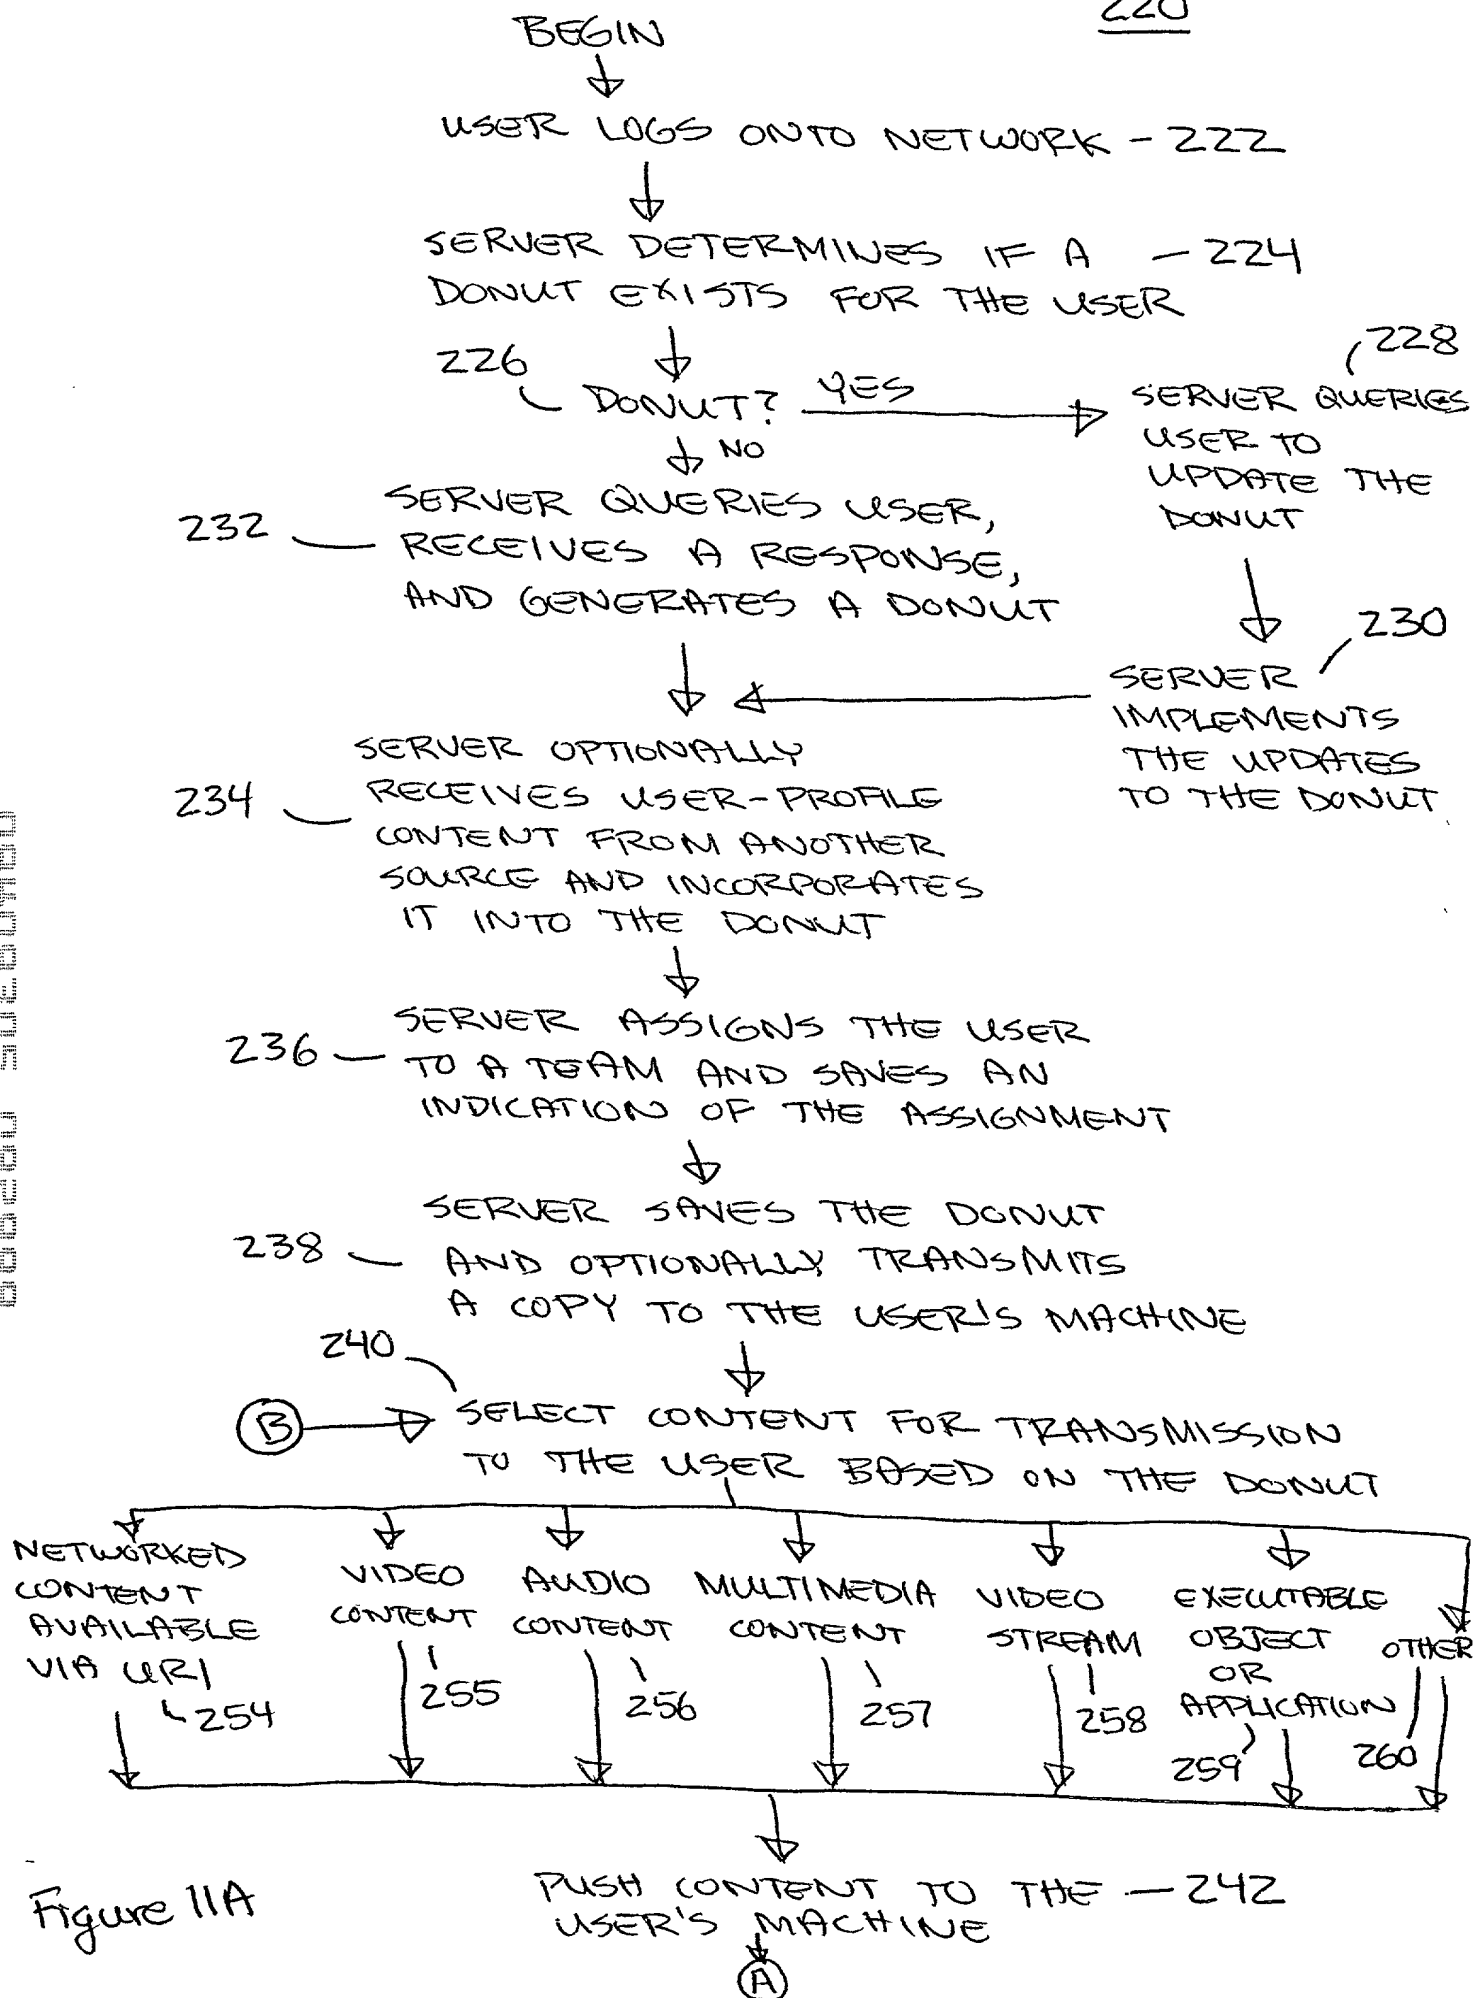 220
BEGIN
USER LOGS ONTO NETWORK - 222
SERVER DETERMINES IF A - 224
DONUT EXISTS FOR THE USER
226
DONUT? YES
NO
228
SERVER QUERIES
USER TO
UPDATE THE
DONUT
232
SERVER QUERIES USER,
RECEIVES A RESPONSE,
AND GENERATES A DONUT
230
SERVER
IMPLEMENTS
THE UPDATES
TO THE DONUT
234
SERVER OPTIONALLY
RECEIVES USER-PROFILE
CONTENT FROM ANOTHER
SOURCE AND INCORPORATES
IT INTO THE DONUT
236
SERVER ASSIGNS THE USER
TO A TEAM AND SAVES AN
INDICATION OF THE ASSIGNMENT
238
SERVER SAVES THE DONUT
AND OPTIONALLY TRANSMITS
A COPY TO THE USER'S MACHINE
240
B
SELECT CONTENT FOR TRANSMISSION
TO THE USER BASED ON THE DONUT
NETWORKED
CONTENT
AVAILABLE
VIA URI
254
VIDEO
CONTENT
255
AUDIO
CONTENT
256
MULTIMEDIA
CONTENT
257
VIDEO
STREAM
258
EXECUTABLE
OBJECT
OR
APPLICATION
259
OTHER
260
PUSH CONTENT TO THE - 242
USER'S MACHINE
A
Figure 11A